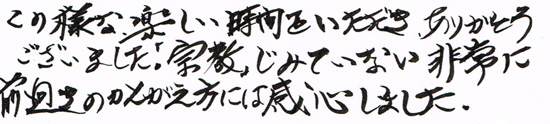 この様な楽しい時間をいただきありがとう
ございました!宗教じみていない非常に
前迎きのかんがえ方には感心しました.